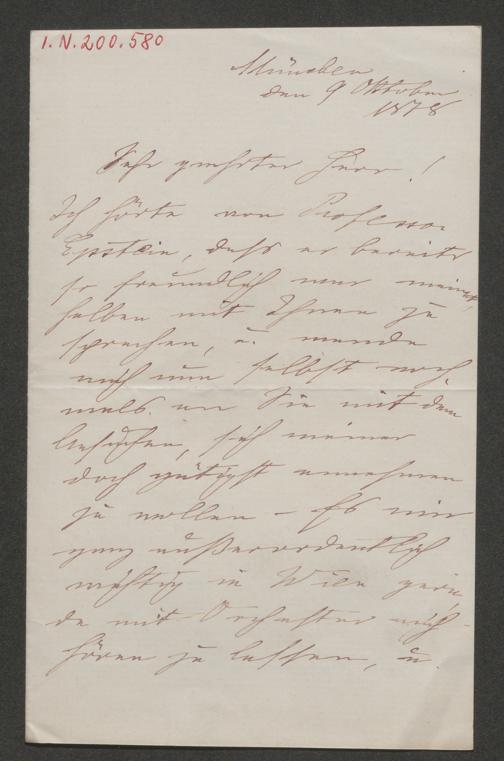 I.N.200.580
München
den 9 Oktober
1878
Sehr geehrter Herr!
Ich hörte von Professor
Epstein, daß er bereits
so freundlich war meinet,
halben mit Ihnen zu
sprechen, u. wende
mich nun selbst noch,
mals an Sie mit dem
Ansuchen, sich meiner
doch gütigst annehmen
zu wollen – Es wär
ganz außerordentlich
wichtig in Wien gera,
de mit Orchester mich
hören zu lassen, u.